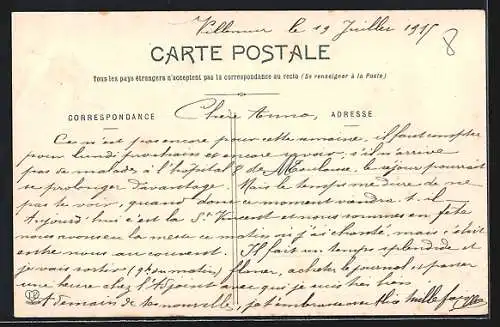 le 19 Juillet 1915
8
CARTE POSTALE
Tous les pays étrangers n'acceptent pas la correspondance au recto (Se renseigner à la Poste)
CORRESPONDANCE
ADRESSE
Chère Anna,
Ce n'est pas encore pour cette semaine, il faut compter
pour lundi prochain et encore savoir, s'il n'arrive
pas de malades à l'hôpital 8 de Moulouse, le séjour pourrait
se prolonger davantage. Mais le temps me dure de ne
pas te voir, quand donc ce moment viendra-t-il
Aujourd'hui c'est la St Vincent et nous sommes en fête
nous avons la messe ce matin où j'ai chanté, mais c'était
entre nous au couvent. Il fait un temps splendide et
je vais sortir (9h du matin) flâner, acheter le journal et passer
une heure chez l'Adjoint avec qui je suis très bien
A demain de tes nouvelles, je t'embrasse mille fois